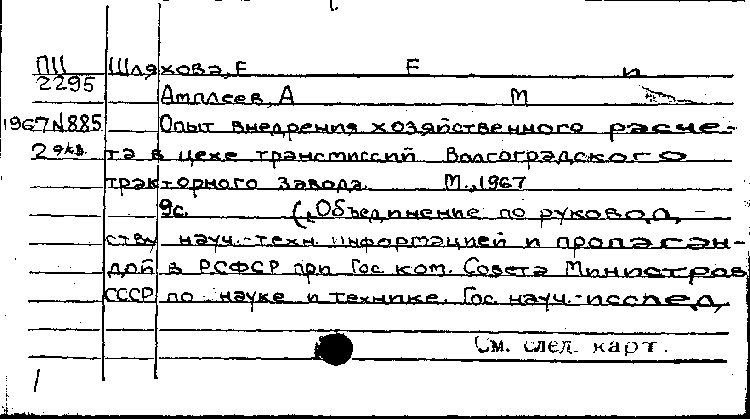 П11 Шляхова, Е Е и
2295
Амплеев, А М
1967N885 Опыт внедрения хозяйственного расче-
29кв. та в цехе трансмиссий Волгоградского
тракторного завода. М., 1967
9с. (,Объединение по руковод, -
ству науч.-техн. информацией и пропаган-
дой в РСФСР при Гос ком. Совета Министров
СССР по науке и технике. Гос. науч.-исслед,
См. след. карт.
1